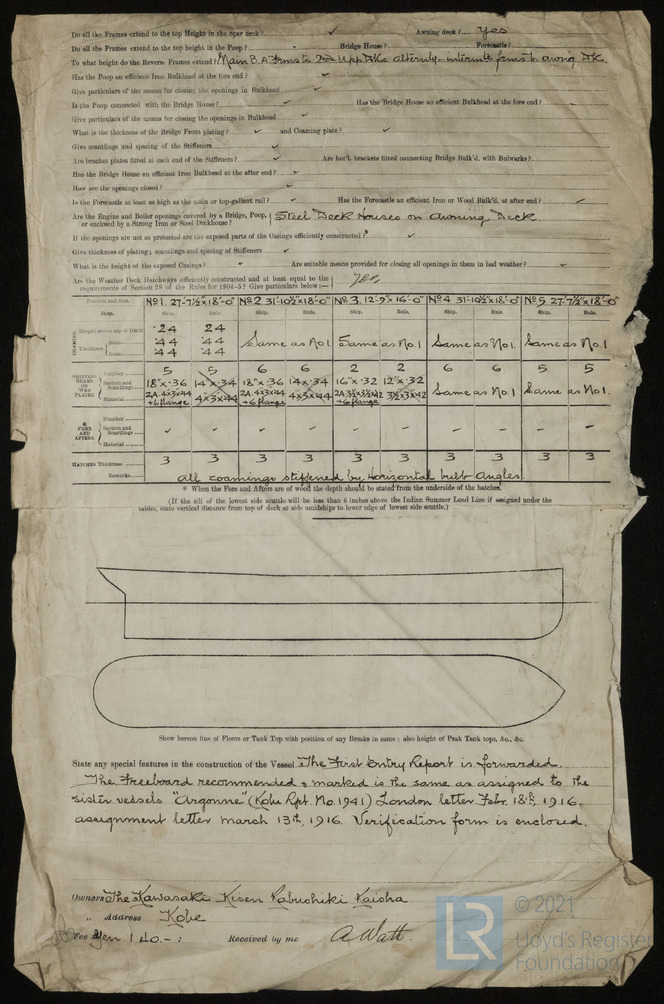 Do all the Frames extend to the top Height in the Spar deck? ✓ Awning deck? Yes
Do all the Frames extend to the top height in the Poop? Bridge House? Forecastle?
To what height do the Reverse Frames extend? Main B.A. frms to 2nd & Upp Dks alternly - intermte frms to awng Dk.
Has the Poop an efficient Iron Bulkhead at the fore end? ✓
Give particulars of the means for closing the openings in Bulkhead ✓
Is the Poop connected with the Bridge House? Has the Bridge House an efficient Bulkhead at the fore end?
Give particulars of the means for closing the openings in Bulkhead
What is the thickness of the Bridge Front plating? ✓ and Coaming plate? ✓
Give scantlings and spacing of the Stiffeners ✓
Are bracket plates fitted at each end of the Stiffeners? ✓ Are hor'l. brackets fitted connecting Bridge Bulk'd. with Bulwarks?
Has the Bridge House an efficient Iron Bulkhead at the after end? ✓
How are the openings closed? ✓
Is the Forecastle at least as high as the main or top-gallant rail? ✓ Has the Forecastle an efficient Iron or Wood Bulk'd. at after end?
Are the Engine and Boiler openings covered by a Bridge, Poop, Steel Deck Houses on Awning Deck.
or enclosed by a Strong Iron or Steel Deckhouse?
If the openings are not so protected are the exposed parts of the Casings efficiently constructed? ✓
Give thickness of plating; scantlings and spacing of Stiffeners ✓
What is the height of the exposed Casings? Are suitable means provided for closing all openings in them in bad weather?
Are the Weather Deck Hatchways efficiently constructed and at least equal to the Yes
requirements of Section 28 of the Rules for 1904-5? Give particulars below:—
Position and Size. No 1. 27-7½" x 18'-0" No 2. 31-10½" x 18'-0" No 3. 12-9" x 16'-0" No 4 31-10½" x 18'-0" No 5 27-7½" x 18'-0"
Item. Ship. Rule. Ship. Rule. Ship. Rule. Ship. Rule. Ship. Rule.
COAMING.
Height above top of DECK -24 24
Thickness Sides .44 .44 Same as No 1 Same as No 1. Same as No 1. Same as No 1
Ends .44 .44
SHIFTING BEAMS OR WEB PLATES.
Number 5 5 6 6 2 2 6 6 5 5
Section and Scantlings 18" x .36 14" x .34 18" x .36 14 x .34 16" x .32 12" x .32 Same as No 1. Same as No 1.
Material 2A 4x3x44 + 6 flange 4x3x44 2A 4x3x44 + 6 flange 4x3x44 + 6 flange 3½x3x42
FORE AND AFTERS.
Number
Section and Scantlings
Material
HATCHES Thickness 3 3 3 3 3 3 3 3 3 3
Remarks All coamings stiffened by Horizontal bulb angles
* When the Fore and Afters are of wood the depth should be stated from the underside of the hatches.
(If the sill of the lowest side scuttle will be less than 6 inches above the Indian Summer Load Line if assigned under the
tables, state vertical distance from top of deck at side amidships to lower edge of lowest side scuttle.)
Show hereon line of Floors or Tank Top with position of any Breaks in same: also height of Peak Tank tops, &c., &c.
State any special features in the construction of the Vessel The First Entry Report is forwarded.
The Freeboard recommended & marked is the same as assigned to the
sister vessels "Argonne" (Kobe Rpt. No. 1941) London letter Febr. 18th, 1916.
assignment letter March 13th, 1916. Verification form is enclosed.
Owners The Kawasaki Kisen Kabushiki Kaisha
" Address Kobe
Fee Yen 140.- : Received by me A. Watt.
© 2021
LR
Lloyd's Register
Foundation